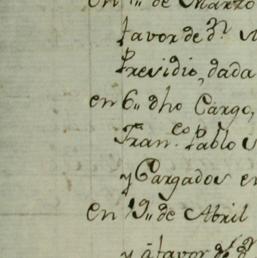 en 1,, de Marzo
favor de dⁿ
Presidio, dada
en 6,, dho Cargo,
Fran.ᶜᵒ Pablo
y Cargados en
en 19,, de Abril
y á favor de dⁿ